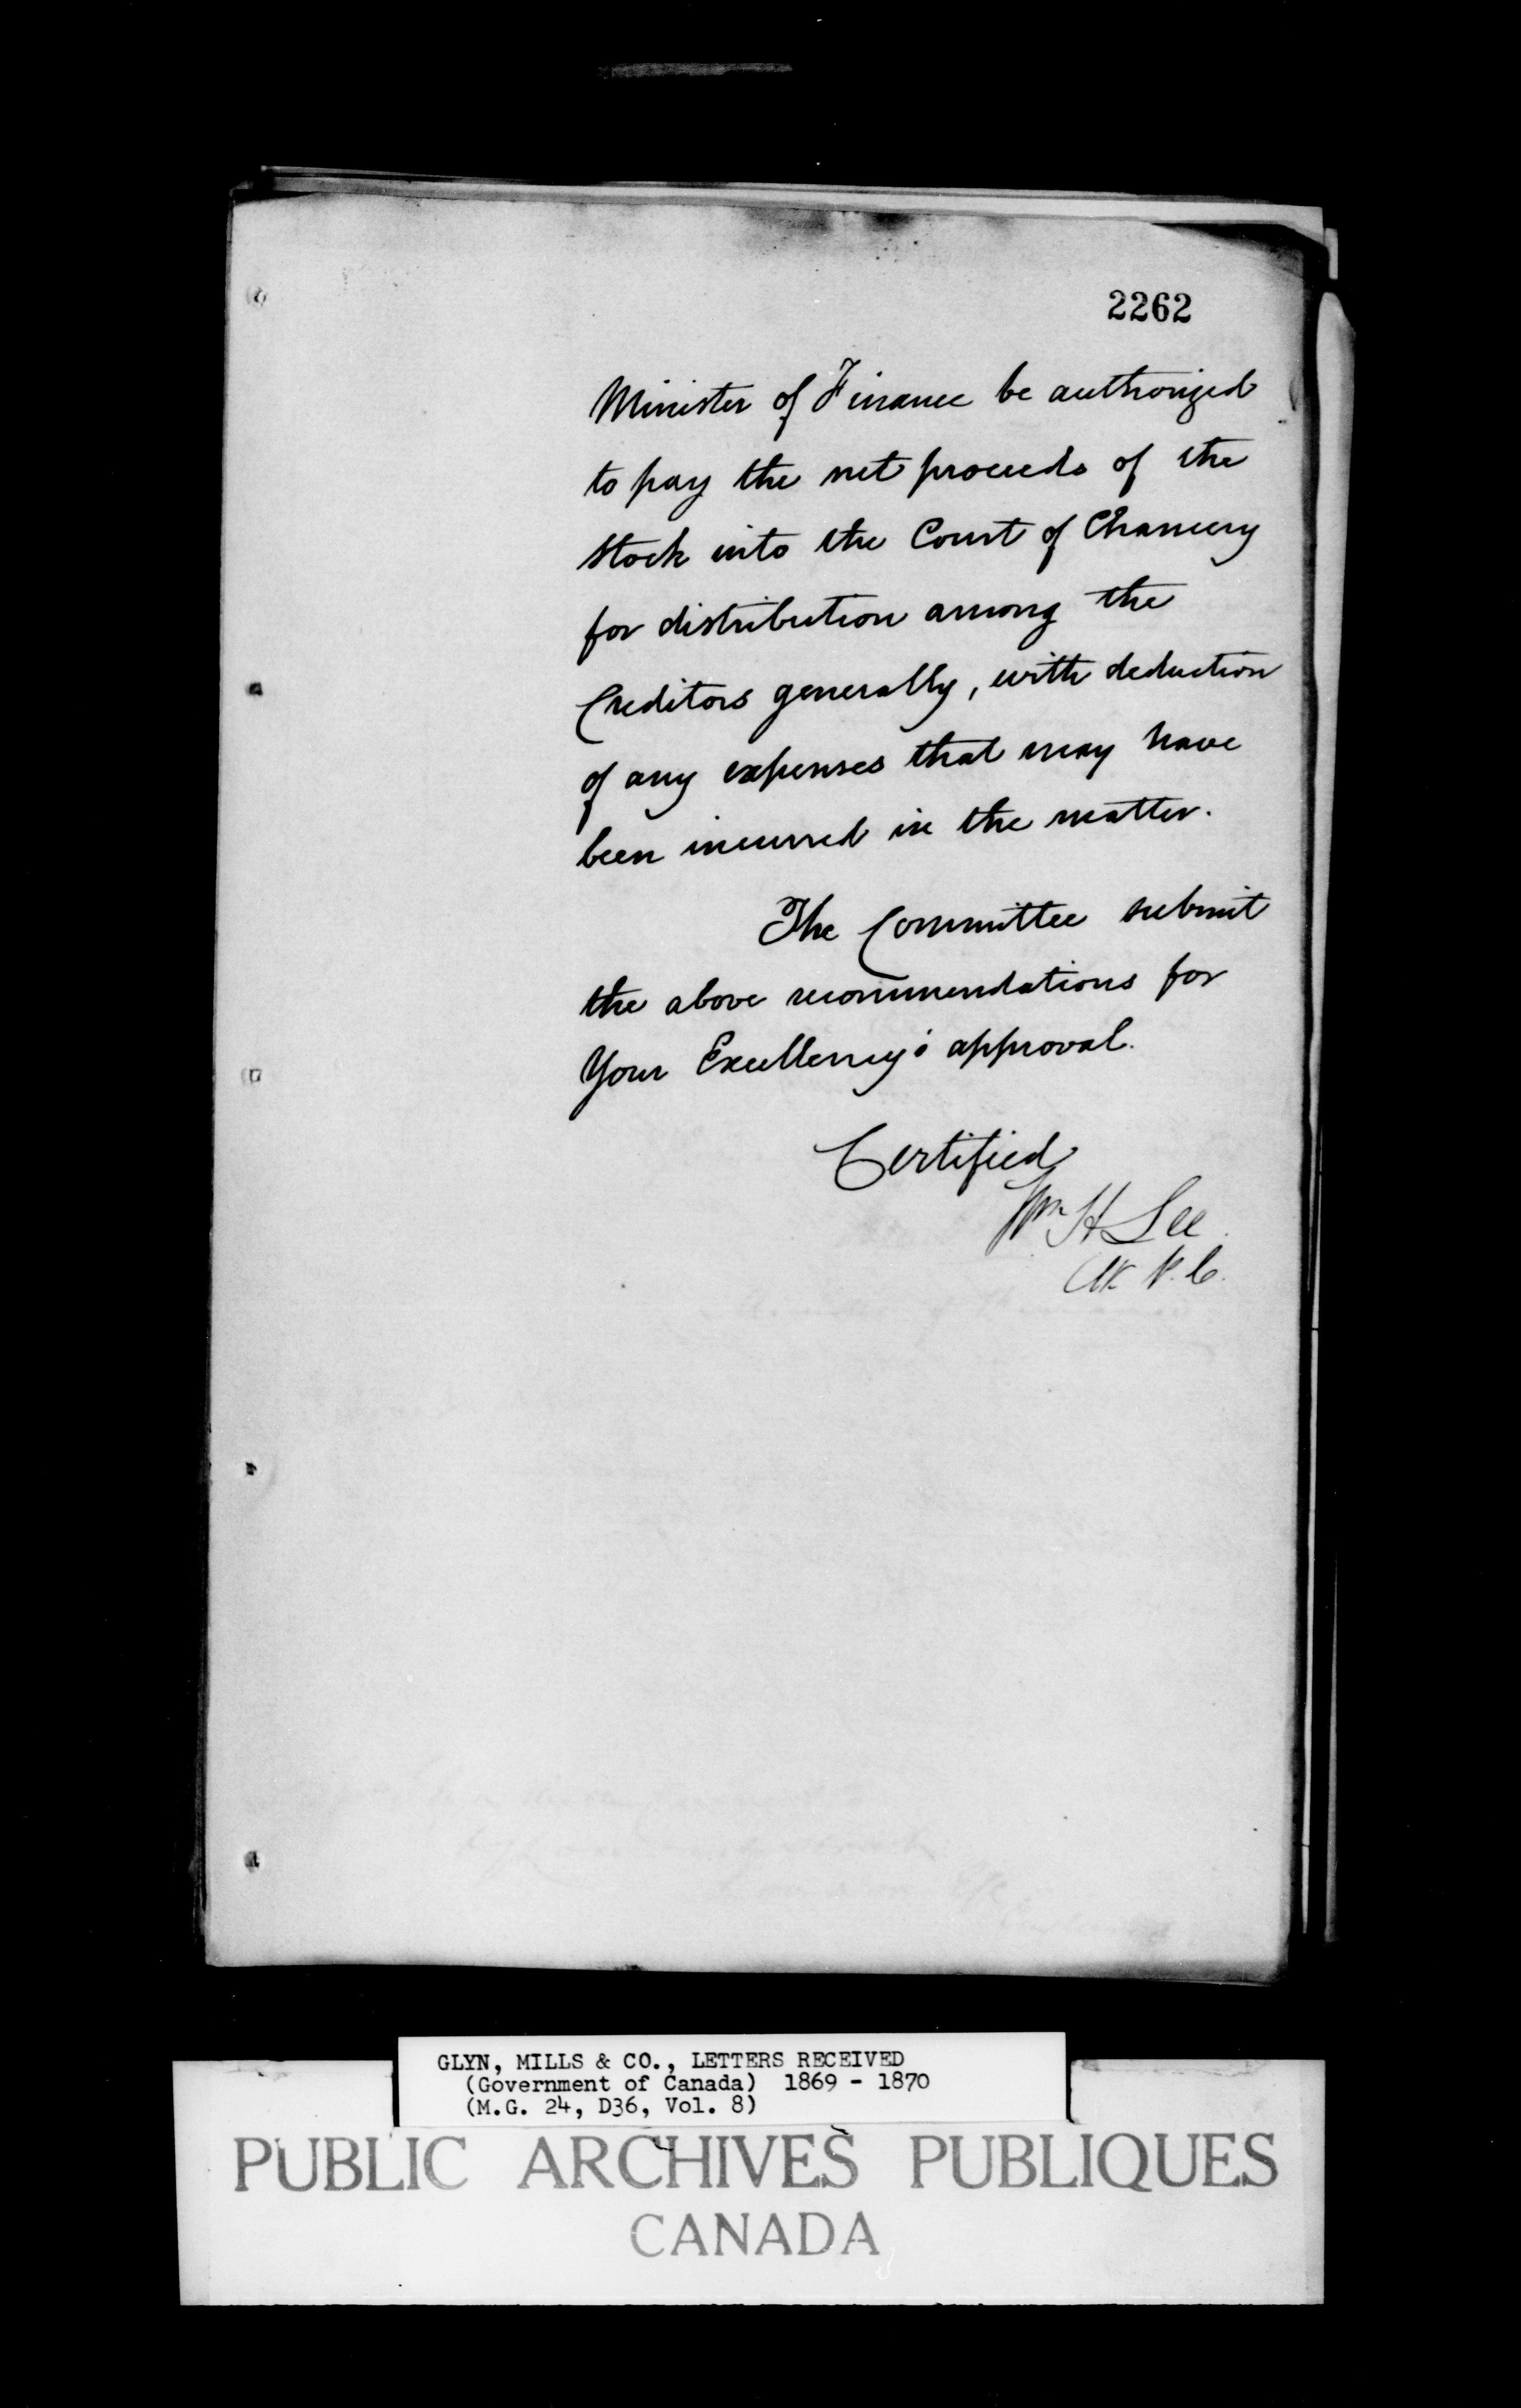 2262
Minister of Finance be authorized
to pay the net proceeds of the
Stock into the Court of Chancery
for distribution among the
Creditors generally, with deduction
of any expenses that may have
been incurred in the matter.
The Committee submit
the above recommendations for
Your Excellency's approval.
Certified
Wm H Lee
Clk P.C.
GLYN, MILLS & CO., LETTERS RECEIVED
(Government of Canada) 1869 - 1870
(M.G. 24, D36, Vol. 8)
PUBLIC ARCHIVES PUBLIQUES
CANADA